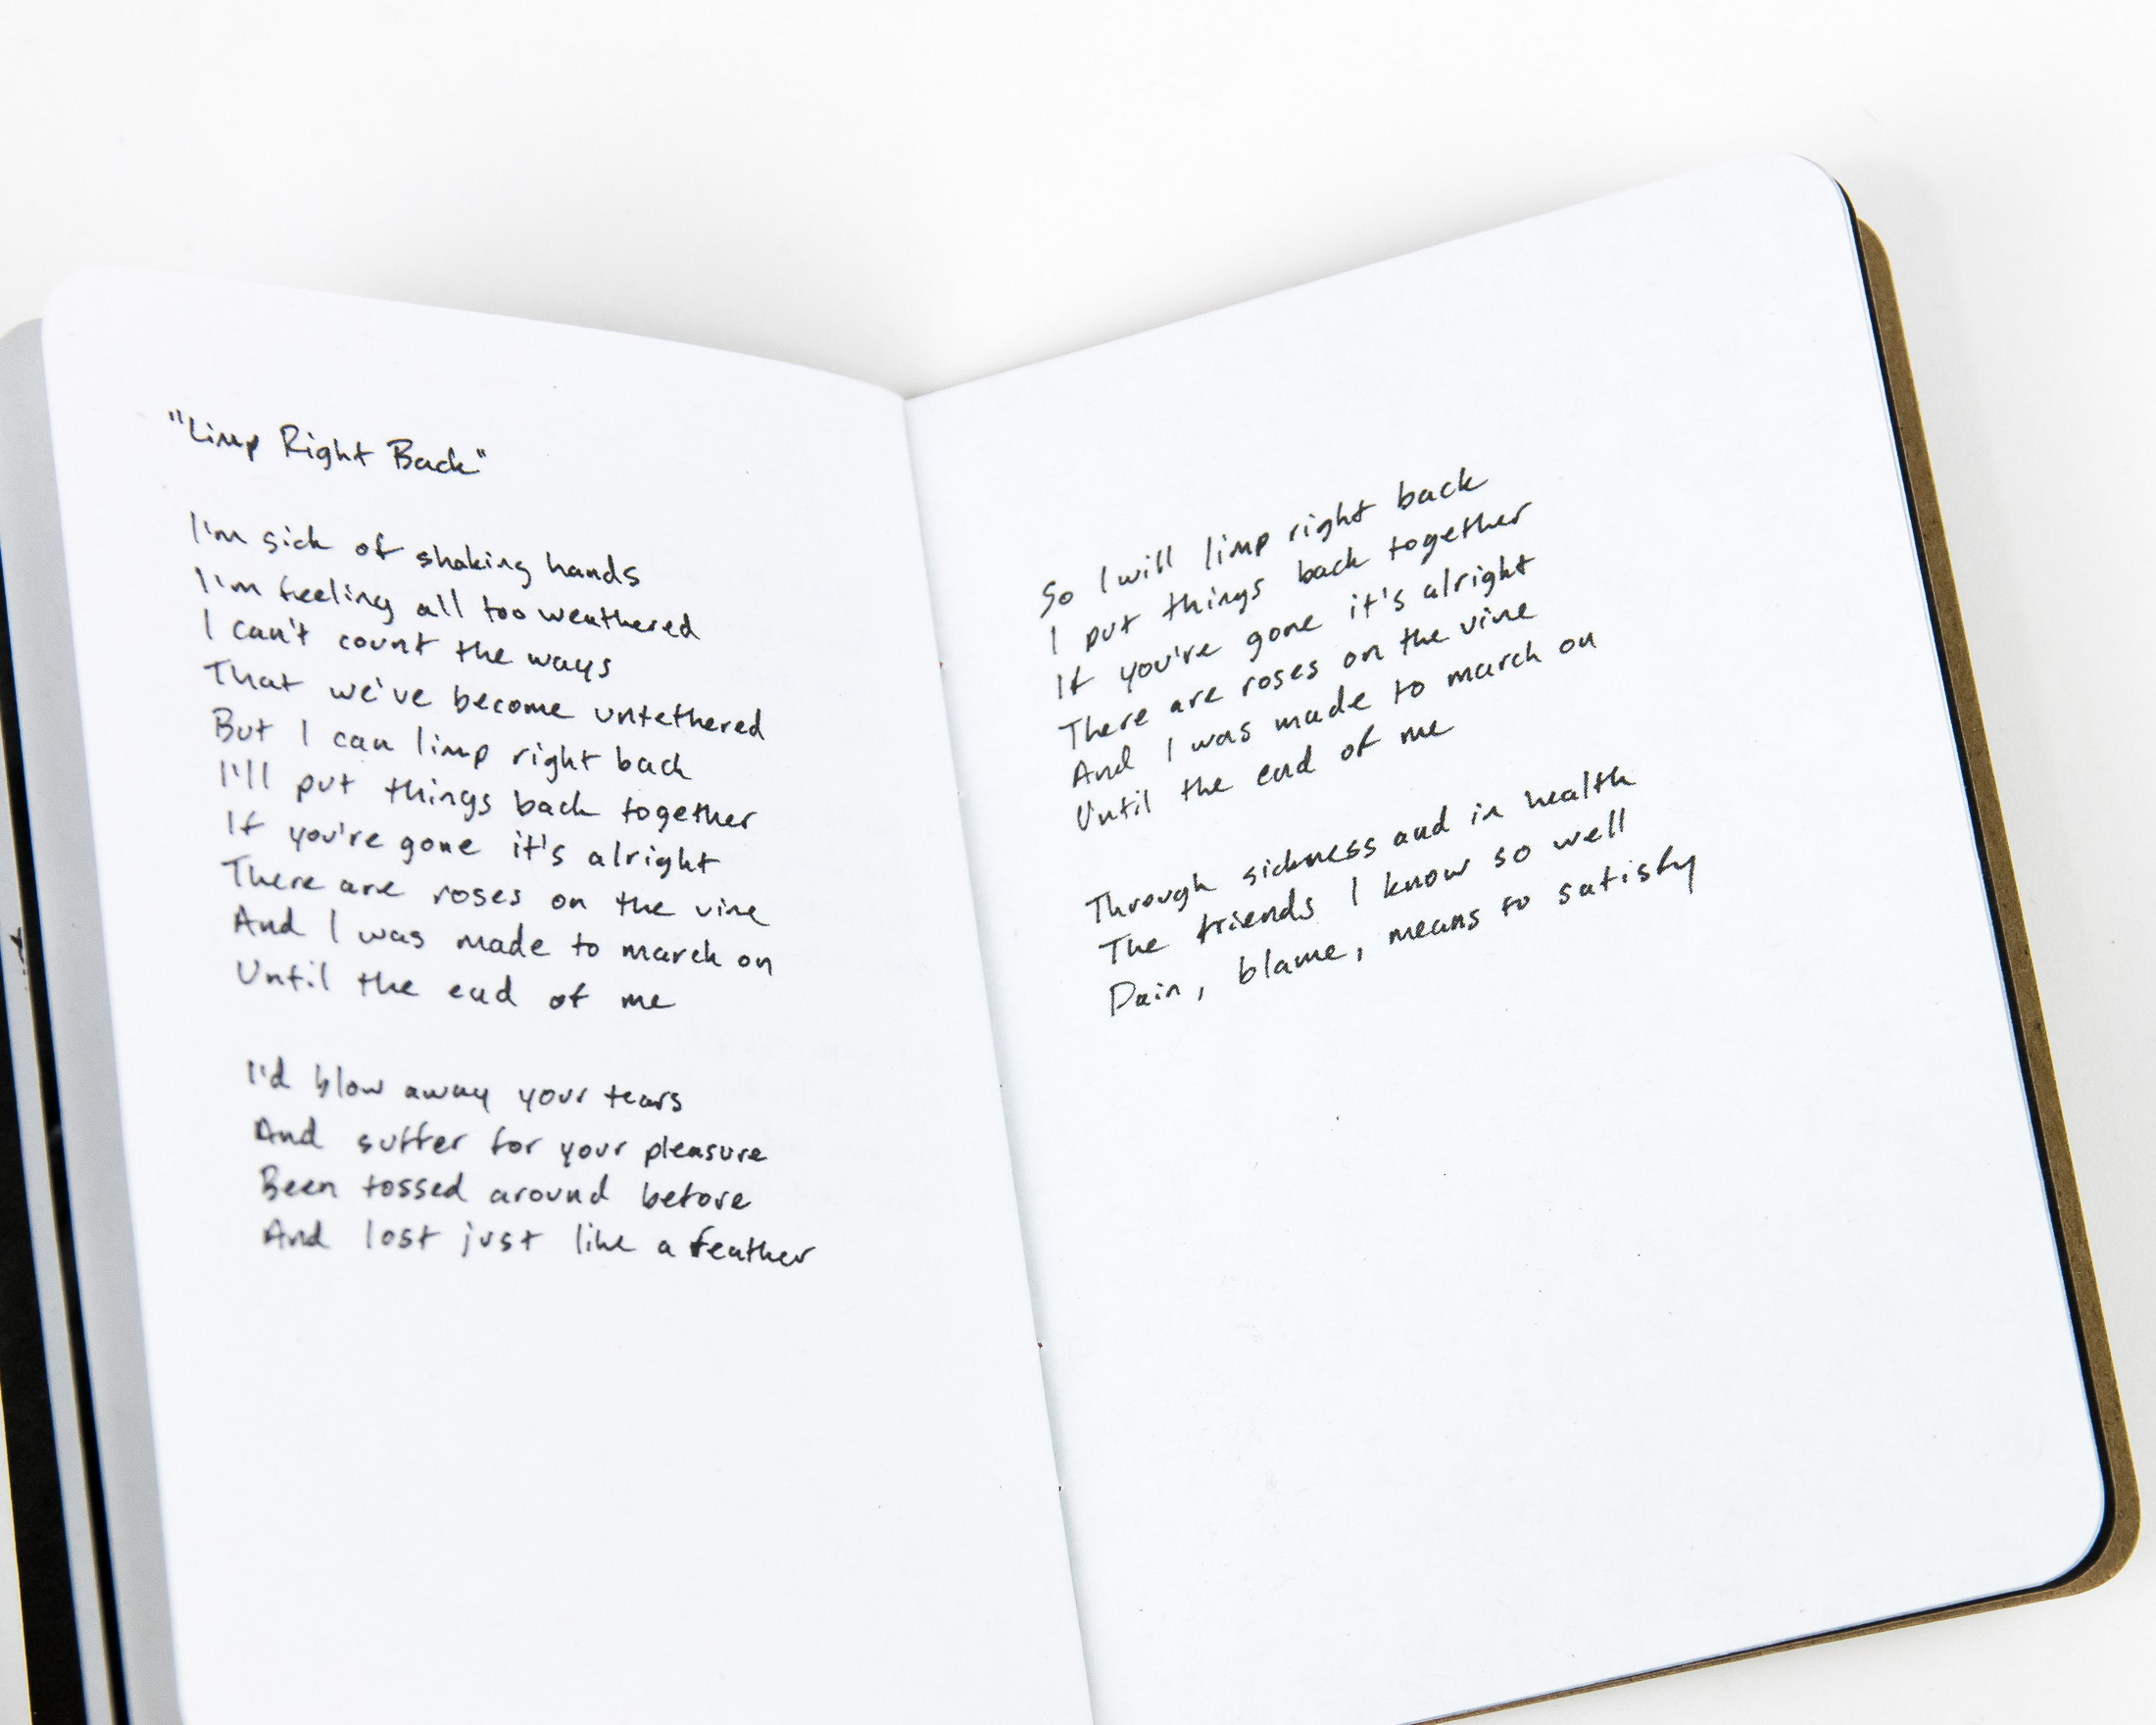 "Limp Right Back"
I'm sick of shaking hands
I'm feeling all too weathered
I can't count the ways
That we've become untethered
But I can limp right back
I'll put things back together
If you're gone it's alright
There are roses on the vine
And I was made to march on
Until the end of me
I'd blow away your tears
And suffer for your pleasure
Been tossed around before
And lost just like a feather
So I will limp right back
I put things back together
If you're gone it's alright
There are roses on the vine
And I was made to march on
Until the end of me
Through sickness and in health
The friends I know so well
Pain, blame, means to satisfy